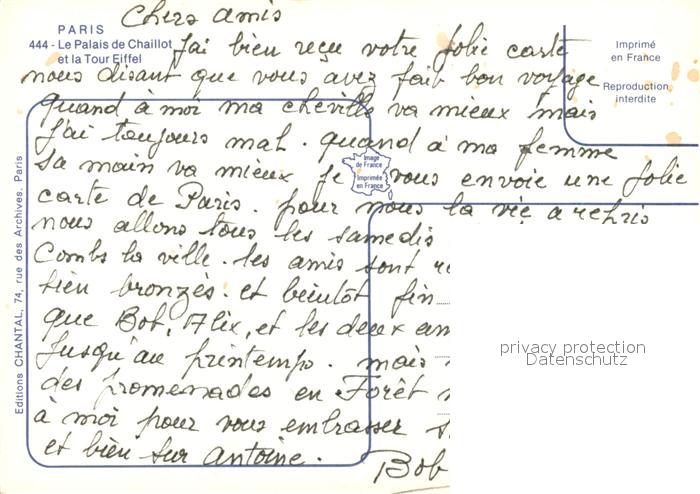 Chers amis
PARIS
444 - Le Palais de Chaillot
et la Tour Eiffel
J'ai bien reçu votre jolie carte
nous disant que vous avez fait bon voyage
quand à moi ma cheville va mieux mais
j'ai toujours mal. quand à ma femme
sa main va mieux je vous envoie une jolie
carte de Paris. pour nous la vie a repris
nous allons tous les samedis
Combs la ville. les amis sont
bien bronzés. et bientôt fin
que Bob, Alix, et les deux
Jusqu'au printemps. mais
des promenades en Forêt
à moi pour vous embrasser
et bien sur Antoine.
Bob
Imprimé
en France
Reproduction
interdite
Image
de France
Imprimée
en France
Editions CHANTAL, 74, rue des Archives, Paris
privacy protection
Datenschutz